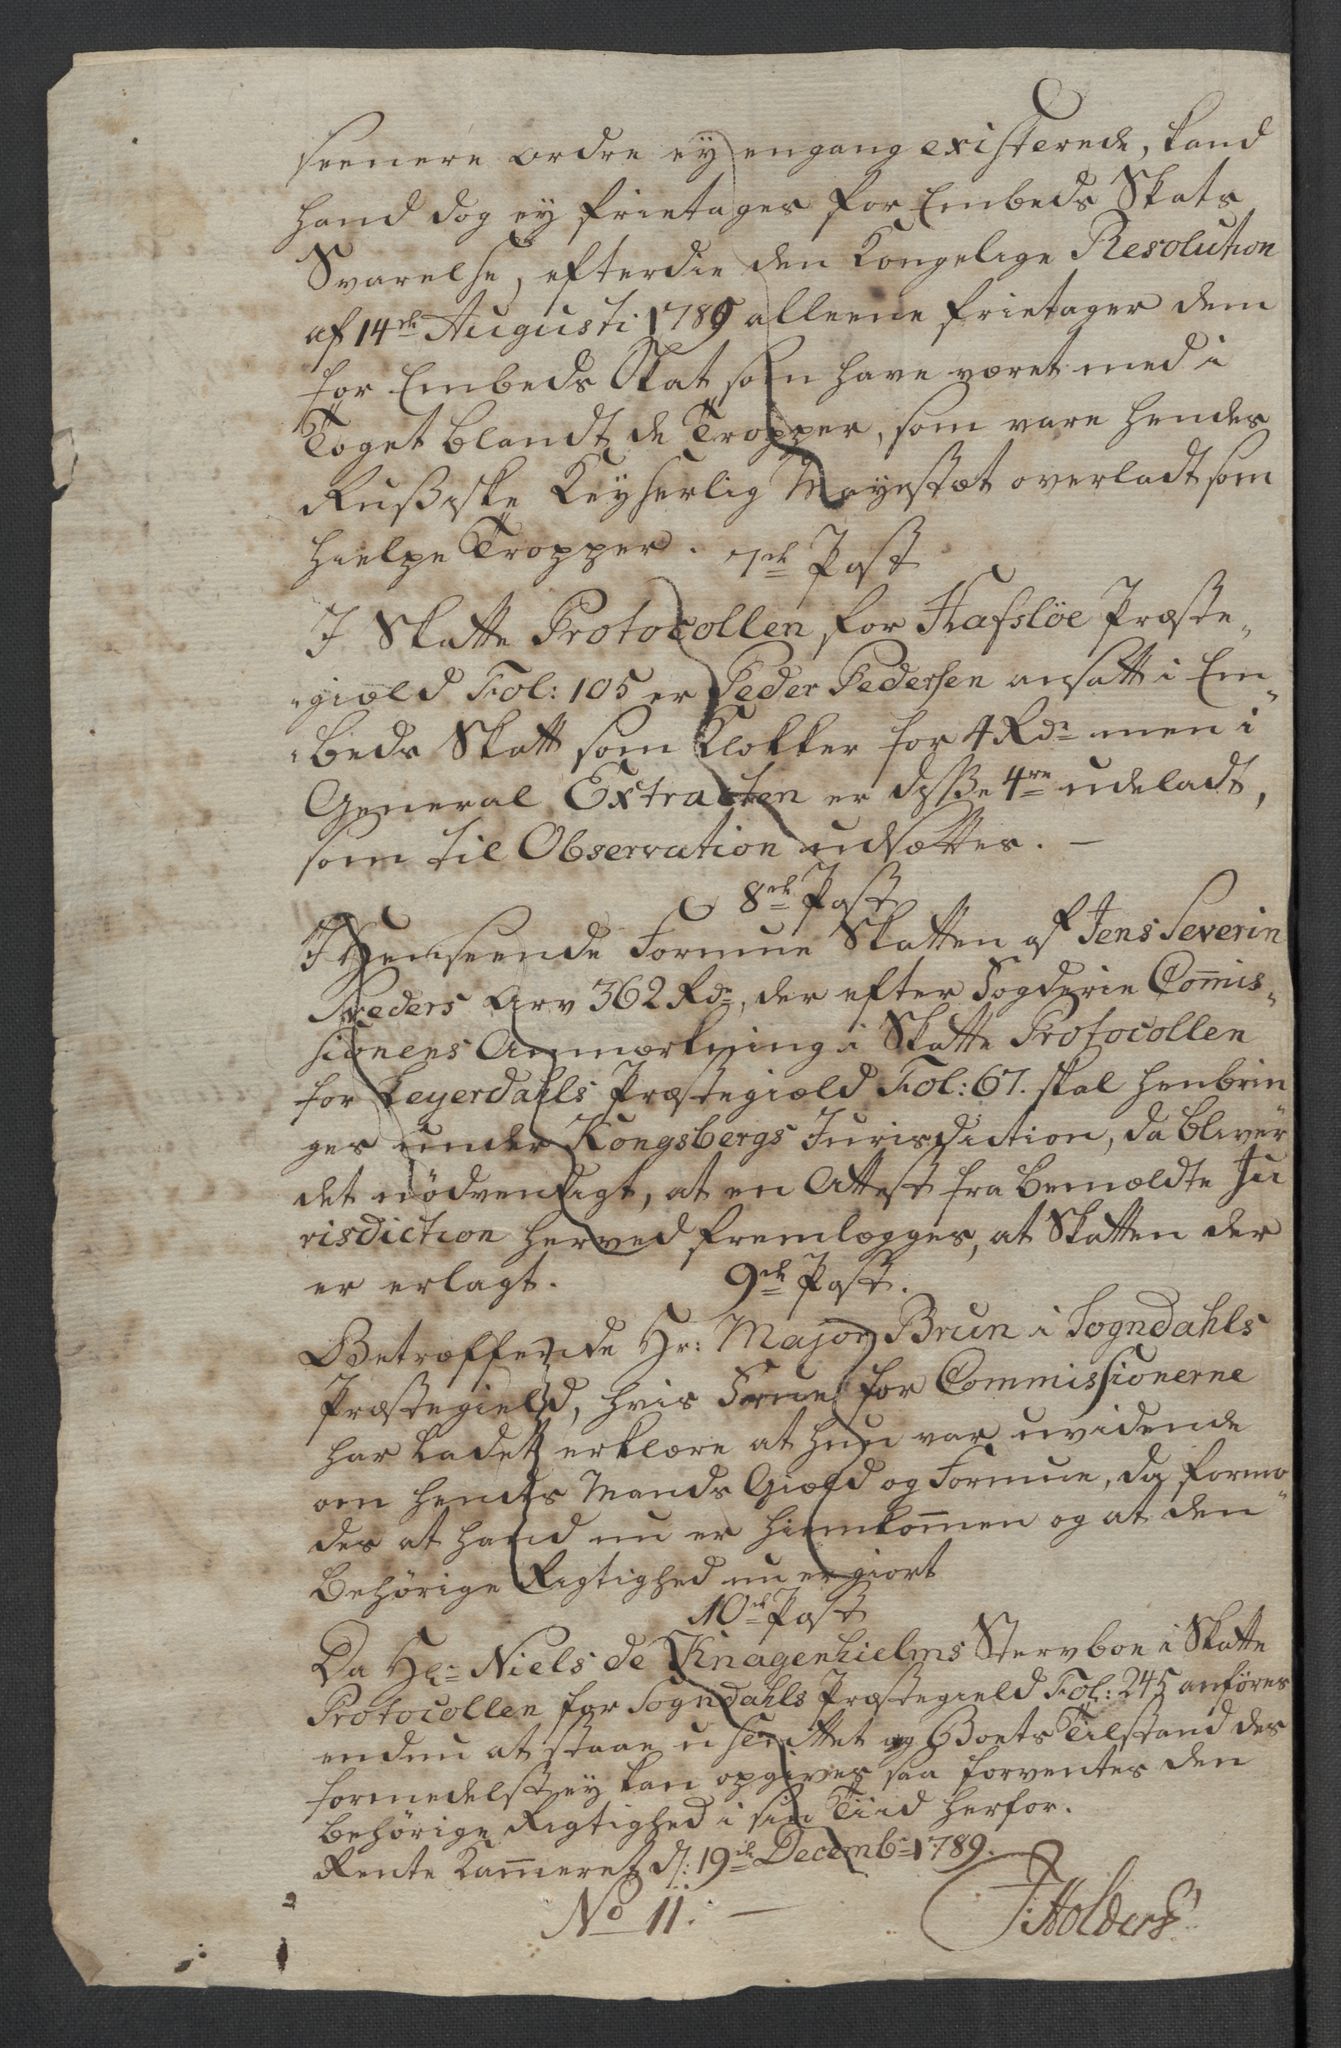 seenere ordre ey engang existerede, kand
hand dog ey frietages for Embeds Skats
Svarelse, efterdie den Kongelige Resolution
af 14de Augusti 1789 alleene frietager dem
for Embeds Skat som have været med i
Toget blandt de Tropper, som vare hendes
Rußiske Keyserlig Mayestæt overladt som
hielpe Tropper. 7de Post
I Skatte Protocollen for Hafsløe Præste„
„giæld Fol: 105 er Peder Pedersen ansatt i Em„
„beds Skatt som Klokker for 4 Rdr men i
General Extracten er disse 4re udeladt,
som til Observation udsættes. —
8de Post
I Henseende Formue Skatten af Jens Severin
Peders Arv 362 Rdr, der efter Fogderie Com̅is„
sionens Anmærkning i Skatte Protocollen
for Leyerdahls Præstegiæld Fol: 67. skal henbrin
ges under Kongsbergs Jurisdiction, da bliver
det nødvendigt, at en Attest fra bemældte Ju
risdiction herved fremlægges, at Skatten der
er erlagt. 9de Post.
Betræffende Hr: Major Brun i Sogndahls
Præstegield, hvis Frue for Commissionerne
har ladet erklære at hun var uvidende
om hendes Mands Giæld og Formue, da formo„
des at hand nu er hiemkom̅en og at den
behørige Rigtighed nu er giort
10de Post
Da Hr: Niels de Knagenhielms Stervboe i Skatte
Protocollen for Sogndahls Præstegield Fol: 245 anføres
endnu at staae u skiftet og Boets Tilstand des
formedelst ey kan opgives saa forventes den
behørige Rigtighed i sin Tiid herfor.
Rente Kam̅eret d: 19de Decembr 1789.
No 11. — Holders